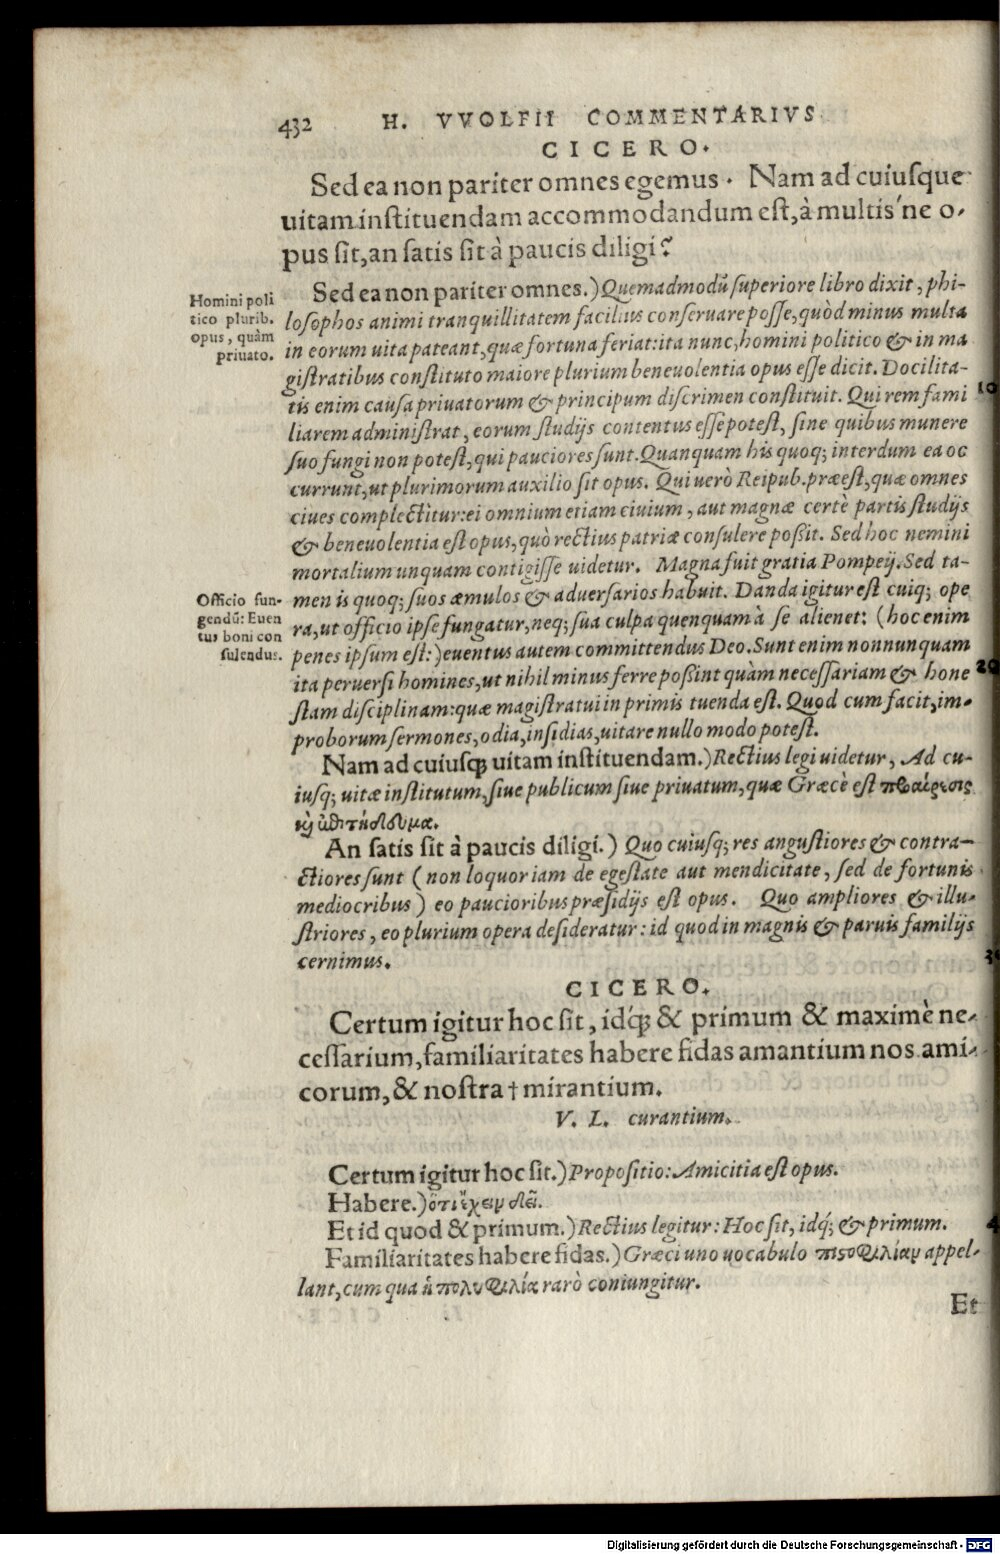 432 H. VVOLFII COMMENTARIVS
CICERO.
Sed ea non pariter omnes egemus. Nam ad cuiuſque
uitam inſtituendam accommodandum eſt, à multis'ne o-
pus ſit, an ſatis ſit à paucis diligi?
Homini poli
tico plurib.
opus, quàm
priuato.
Sed ea non pariter omnes.) Quemadmodũ ſuperiore libro dixit, phi-
loſophos animi tranquillitatem facilius conſeruare poſſe, quòd minus multa
in eorum uita pateant, quæ fortuna feriat: ita nunc, homini politico & in ma
giſtratibus conſtituto maiore plurium beneuolentia opus eſſe dicit. Docilita-
tis enim cauſa priuatorum & principum diſcrimen conſtituit. Qui rem fami 10
liarem adminiſtrat, eorum ſtudijs contentus eſſe poteſt, ſine quibus munere
ſuo fungi non poteſt, qui pauciores ſunt. Quanquam his quoq; interdum ea oc
currunt, ut plurimorum auxilio ſit opus. Qui uerò Reipub. præeſt, quæ omnes
ciues complectitur: ei omnium etiam ciuium, aut magnæ certè partis ſtudijs
& beneuolentia eſt opus, quò rectius patriæ conſulere poßit. Sed hoc nemini
mortalium unquam contigiſſe uidetur. Magna fuit gratia Pompeij. Sed ta-
Officio fun-
gendũ: Euen
tus boni con
ſulendus.
men is quoq; ſuos æmulos & aduerſarios habuit. Danda igitur eſt cuiq; ope
ra, ut officio ipſe fungatur, neq; ſua culpa quenquam à ſe alienet: (hoc enim
penes ipſum eſt:) euentus autem committendus Deo. Sunt enim nonnunquam
ita peruerſi homines, ut nihil minus ferre poßint quàm neceſſariam & hone 20
ſtam diſciplinam: quæ magiſtratui in primis tuenda eſt. Quod cum facit, im-
proborum ſermones, odia, inſidias, uitare nullo modo poteſt.
Nam ad cuiuſq; uitam inſtituendam.) Rectius legi uidetur, Ad cu-
iuſq; uitæ inſtitutum, ſiue publicum ſiue priuatum, quæ Græcè eſt προαίρεσις
καὶ ἐπιτήδευμα.
An ſatis ſit à paucis diligi.) Quo cuiuſq; res anguſtiores & contra-
ctiores ſunt (non loquor iam de egeſtate aut mendicitate, ſed de fortunis
mediocribus) eo paucioribus præſidijs eſt opus. Quo ampliores & illu-
ſtriores, eo plurium opera deſideratur: id quod in magnis & paruis familijs
cernimus.
CICERO.
Certum igitur hoc ſit, idq́; & primum & maximè ne-
ceſſarium, familiaritates habere fidas amantium nos ami-
corum, & noſtra † mirantium.
V. L. curantium.
Certum igitur hoc ſit.) Propoſitio: Amicitia eſt opus.
Habere.) ὅτι ἔχειν δεῖ.
Et id quod & primum.) Rectius legitur: Hoc ſit, idq́; & primum. 4
Familiaritates habere fidas.) Græci uno uocabulo πιστοφιλίαν appel-
lant, cum qua ἡ πολυφιλία rarò coniungitur.
Et
Digitalisierung gefördert durch die Deutsche Forschungsgemeinschaft - DFG